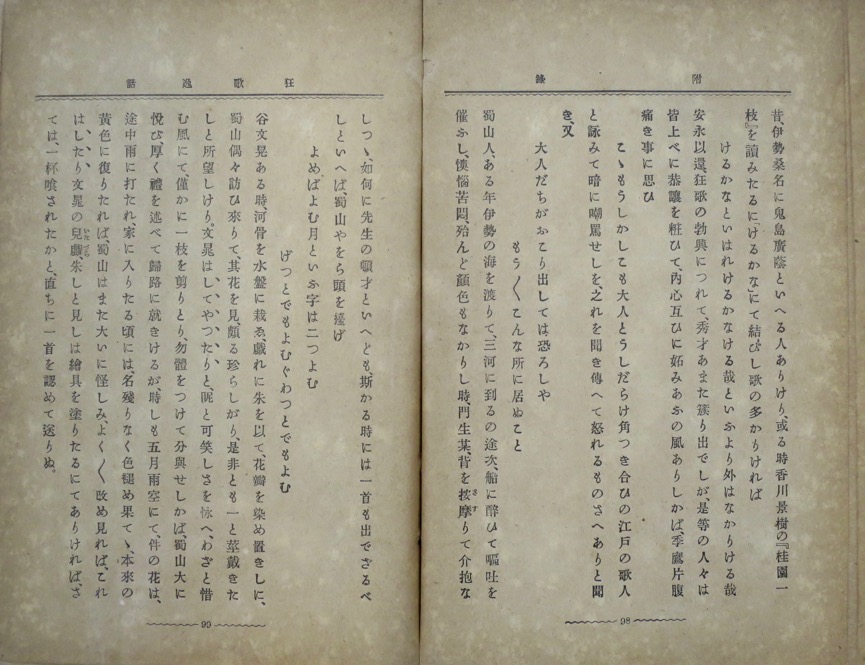 附錄
昔、伊勢桑名に鬼島廣蔭といへる人ありけり、或る時香川景樹の『桂園一
枝』を讀みたるにけるかな』にて結びし歌の多かりければ
けるかなといはれけるかなける哉といふより外はなかりける哉
安永以還、狂歌の勃興につれて、秀才あまた簇り出でしが、是等の人々は
皆上べに恭謙を粧ひて、內心互ひに妬みあふの風ありしかば、季鷹片腹
痛き事に思ひ
こゝもうしかしこも大人とうしだらけ角つき合ひの江戶の歌人
と詠みて暗に嘲罵せしを、之れを聞き傳へて怒れるものさへありと聞
き、又
大人だちがおこり出しては恐ろしや
もう〳〵こんな所に居ぬこと
蜀山人、ある年伊勢の海を渡りて、三河に到るの途次、船に醉ひて嘔吐を
催ふし、懊惱苦悶、殆んど顏色もなかりし時、門生某、背を按摩りて介抱な
98
狂歌逸話
しつゝ、如何に先生の頓才といへども、斯かる時には一首も出でざるべ
しといへば、蜀山やをら頭を擡げ
よめばよむ月といふ字は二つよむ
げつとでもよむぐわつとでもよむ
谷文晁ある時、河骨を水盤に栽ゑ戲れに朱を以て、花瓣を染め置きしに、
蜀山偶々訪ひ來りて、其花を見、頗る珍らしがり、是非とも一と莖戴きた
しと所望しけり。文晁はしてやつたりと、昵と可笑しさを怺へ、わざと惜
む風にて、僅かに一枝を剪りとり、勿體をつけて分與せしかば、蜀山大に
悅び、厚く禮を述べて歸路に就きけるが、時しも五月雨空にて、件の花は、
途中雨に打たれ、家に入りたる頃には、名殘りなく色褪め果てゝ、本來の
黃色に復りたれば、蜀山はまた大いに怪しみ、よく〳〵改め見れば、これ
はしたり文晁の兒戲朱しと見しは繪具を塗りたるにてありければ、さ
ては、一杯喰されたかと、直ちに一首を認めて送りぬ。
99